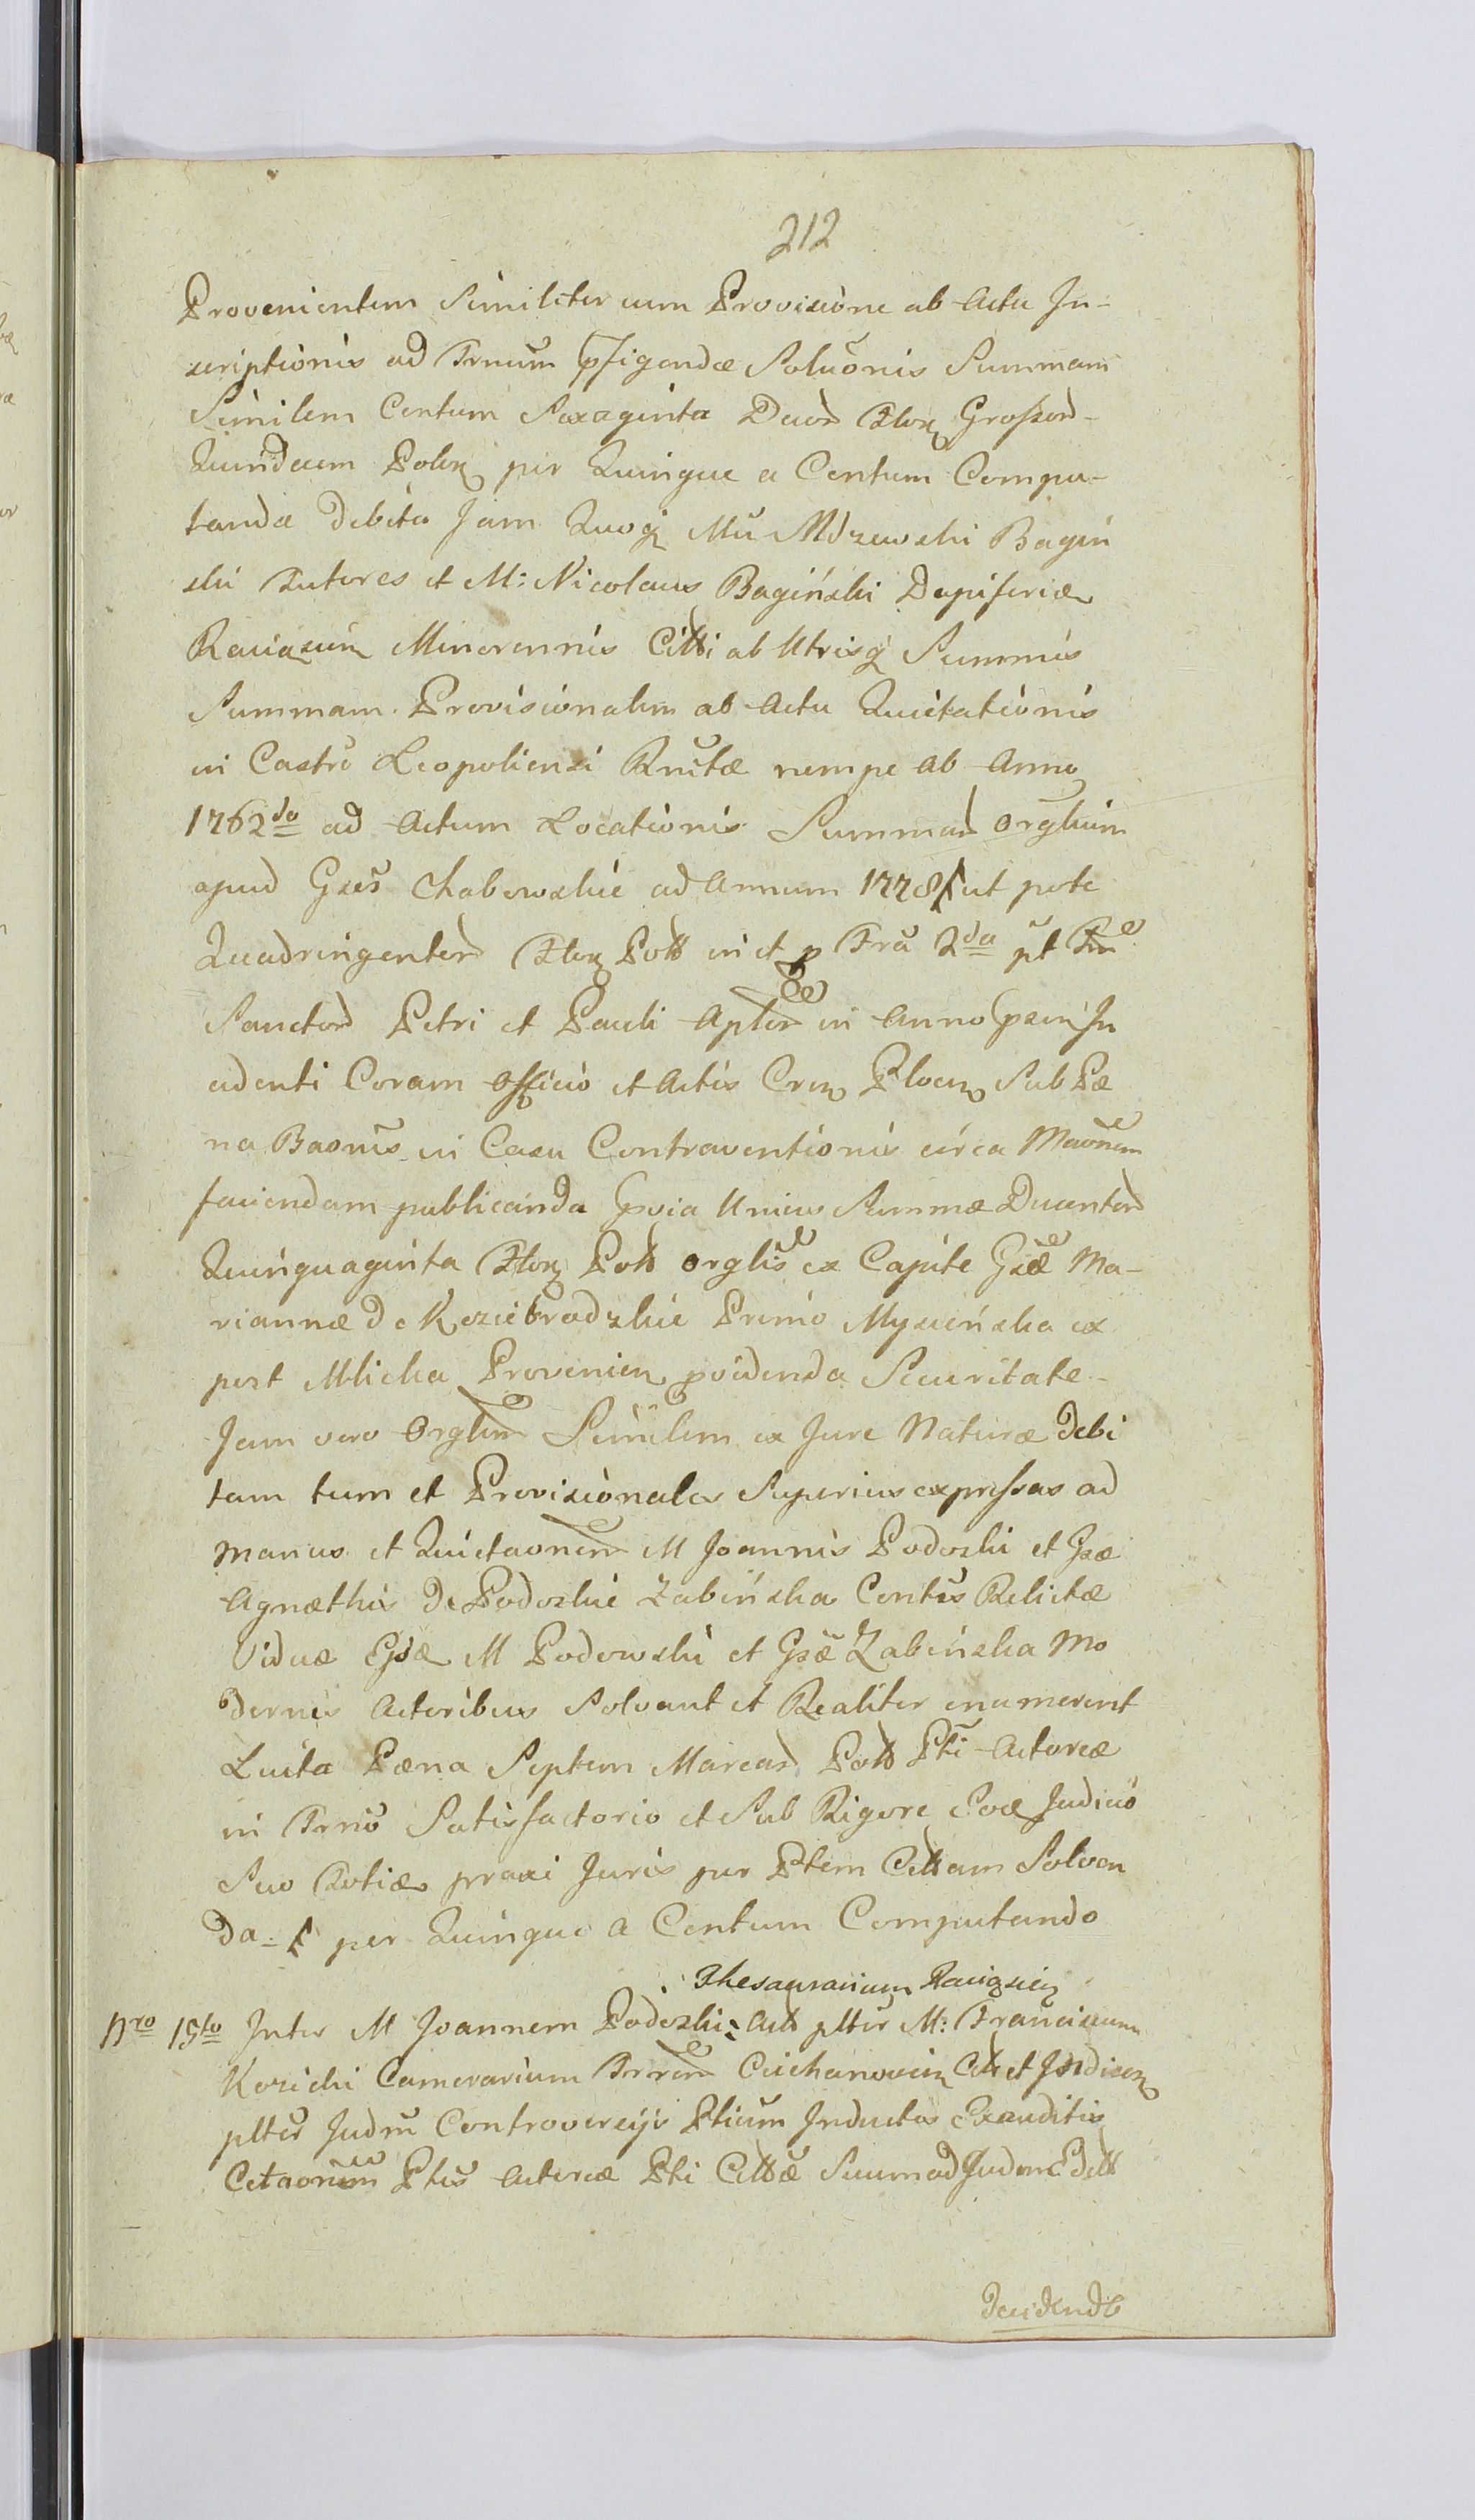 212
Provenientem Similiter cum Provisione ab Actu In-
scriptionis ad Trnum pfigendæ Soluōnis Summam
Similem Centum Sexaginta Duor Flor Grossor-
Quindecim Polon per Quinque a Centum Compu-
tanda debita Jam Quoq Mci Mdzewski Bagiń
ski Tutores et M: Nicolaus Bagiński Dapiferid
Raviascien Minorennis Citti ab Utrisq Summis
Summam Provisionalem ab Actu Quietationis
in Castro Leopoliensi Rnitæ nempe ab Anno
1762do ad Actum Locationis Summar Orglium
apud Gsos Chabowskie ad Annum 1778 ut pote
Quadringentor Flor Poll in et p Fra 2da pt Fm
Sanctor Petri et Pauli Aplor in Anno psenti In
cidenti Coram Officio et Actis Cren Plocen Sub Pæ
na Baonis in Casu Contraventionis circa Maonem
faciendam publicanda pvia Unius Summæ Ducentor
Quinquaginta Flor Poll Orglis ex Capite Gsæ Ma-
riannæ de Koziebrodzkie Primo Myscińska ex
post Mlicka Provenien pvidenda Securitate-
Jam vero Orglem Similem ex Jure Naturæ debi
tam tum et Provisionales Superius expressas ad
manus et Quietaonem M Joannis Podoski et Gsæ
Agnæthis de Podoskie Zabińska Contis Relictæ
Viduæ Ejsd M Podowski et Gsæ Zabińska Mo
dernis Actoribus Solvant et Realiter enumerent
Luita Pæna Septem Marcar Poll Pti Actoreæ
in Trno Satisfactorio et Sub Rigore Evæ Judicio
Suo Totia praxi Juris per Ptem Cittam Solven
da- per Quinque a Centum Computando
Thesaurarium Raviascien
Nro 15to Inter M Joannem Podoski Act plter M: Franciscum
Kozicki Camerarium Trrem Ciechanovien Citt et Judicen
plter Judm Controversijs Ptium Inductis Exauditis
Citaonem Ptis Actoreæ Pti Cittæ Suum ad Judm Editt